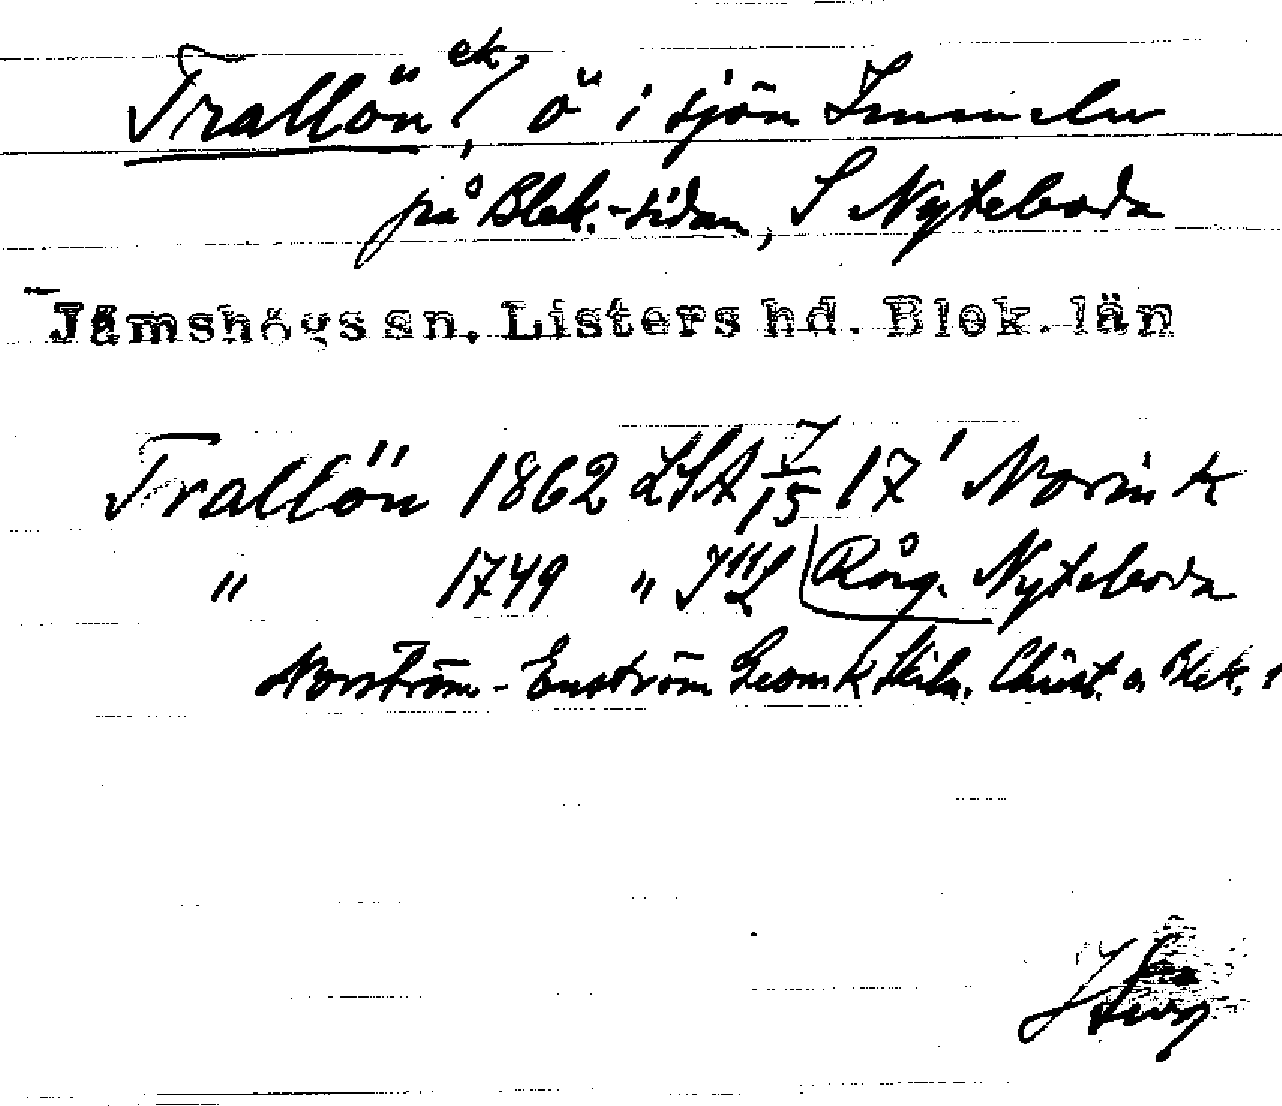 Trallön, ek, ö i sjön Immeln
på Blek.-sidan, S Nyteboda
Jämshögs sn. Listers hd. Blek. län
Trallön 1862 LSA 7/15 17' Norin K
" 1749 " Rårg. Nyteboda
Norström - Enström Geom K Skiln. Christ. o Blek.